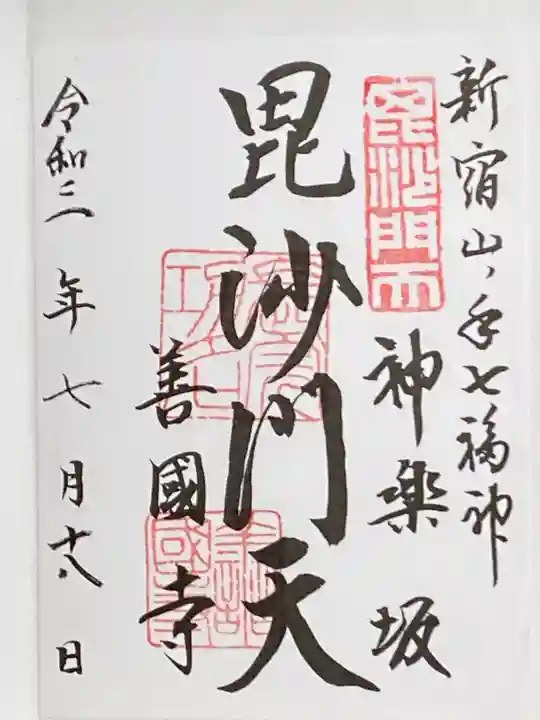 新宿山ノ手七福神
毘沙門天
神楽坂
毘沙門天
善國寺
令和二年七月十八日